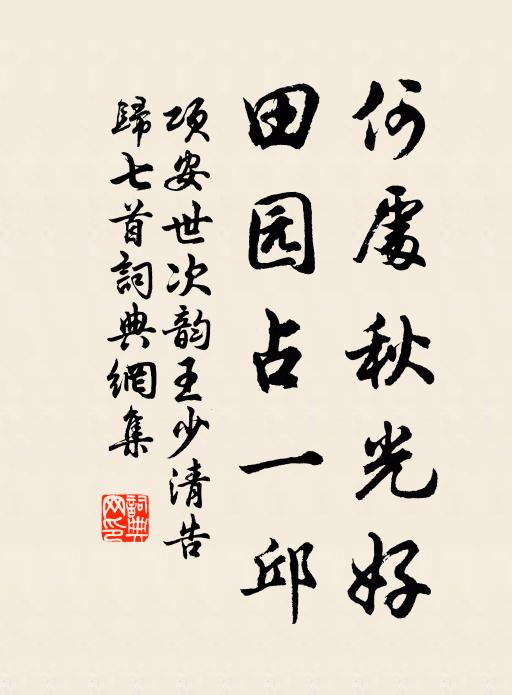 何處秋光好
田园占一邱
项安世次韵王少清告
歸七首詞典網集
詞典网印